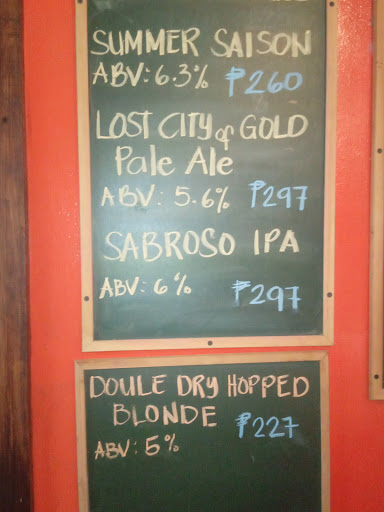 SUMMER SAISON
ABV: 6.3% ₱260
LOST CITY of GOLD
Pale Ale
ABV: 5.6% ₱297
SABROSO IPA
ABV: 6% ₱297
DOULE DRY HOPPED
BLONDE ₱227
ABV: 5%